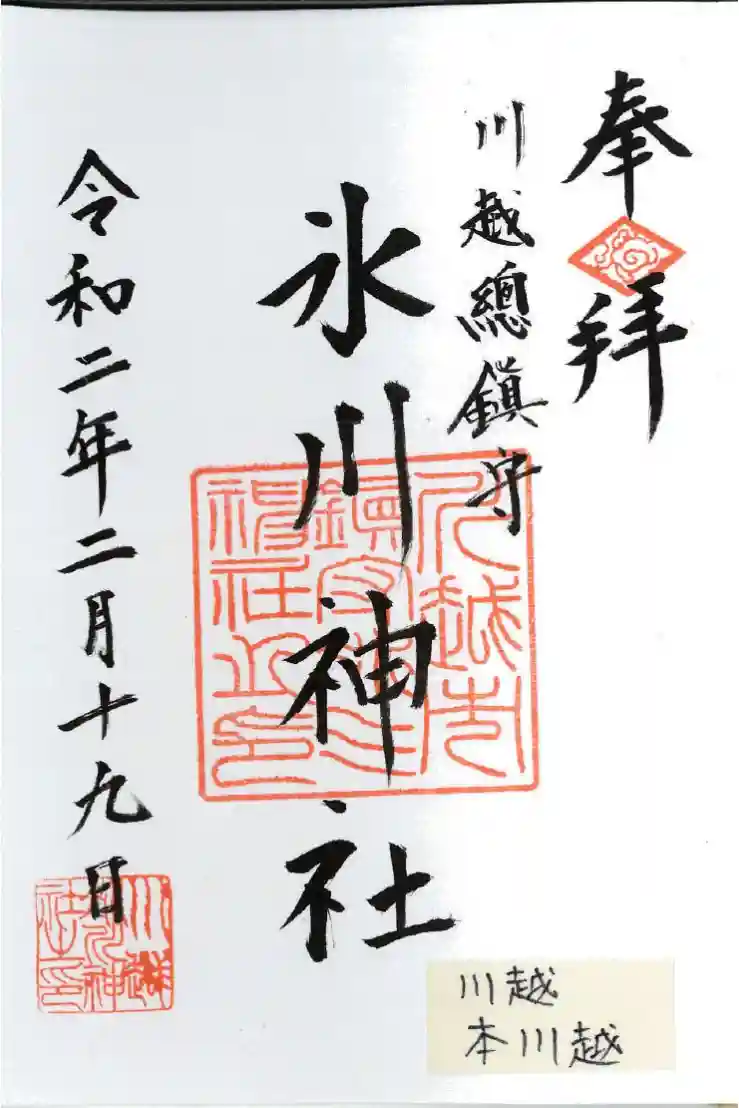 奉拜
川越總鎮守
氷川神社
令和二年二月十九日
川越
本川越